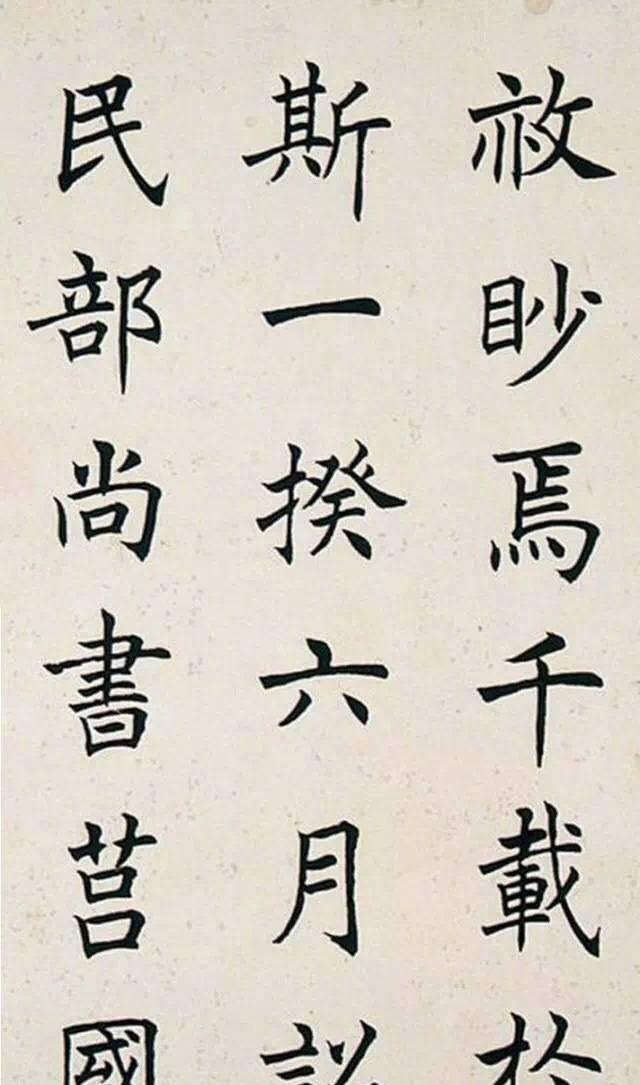 眇焉千載於
斯一揆六月
民部尚書莒國